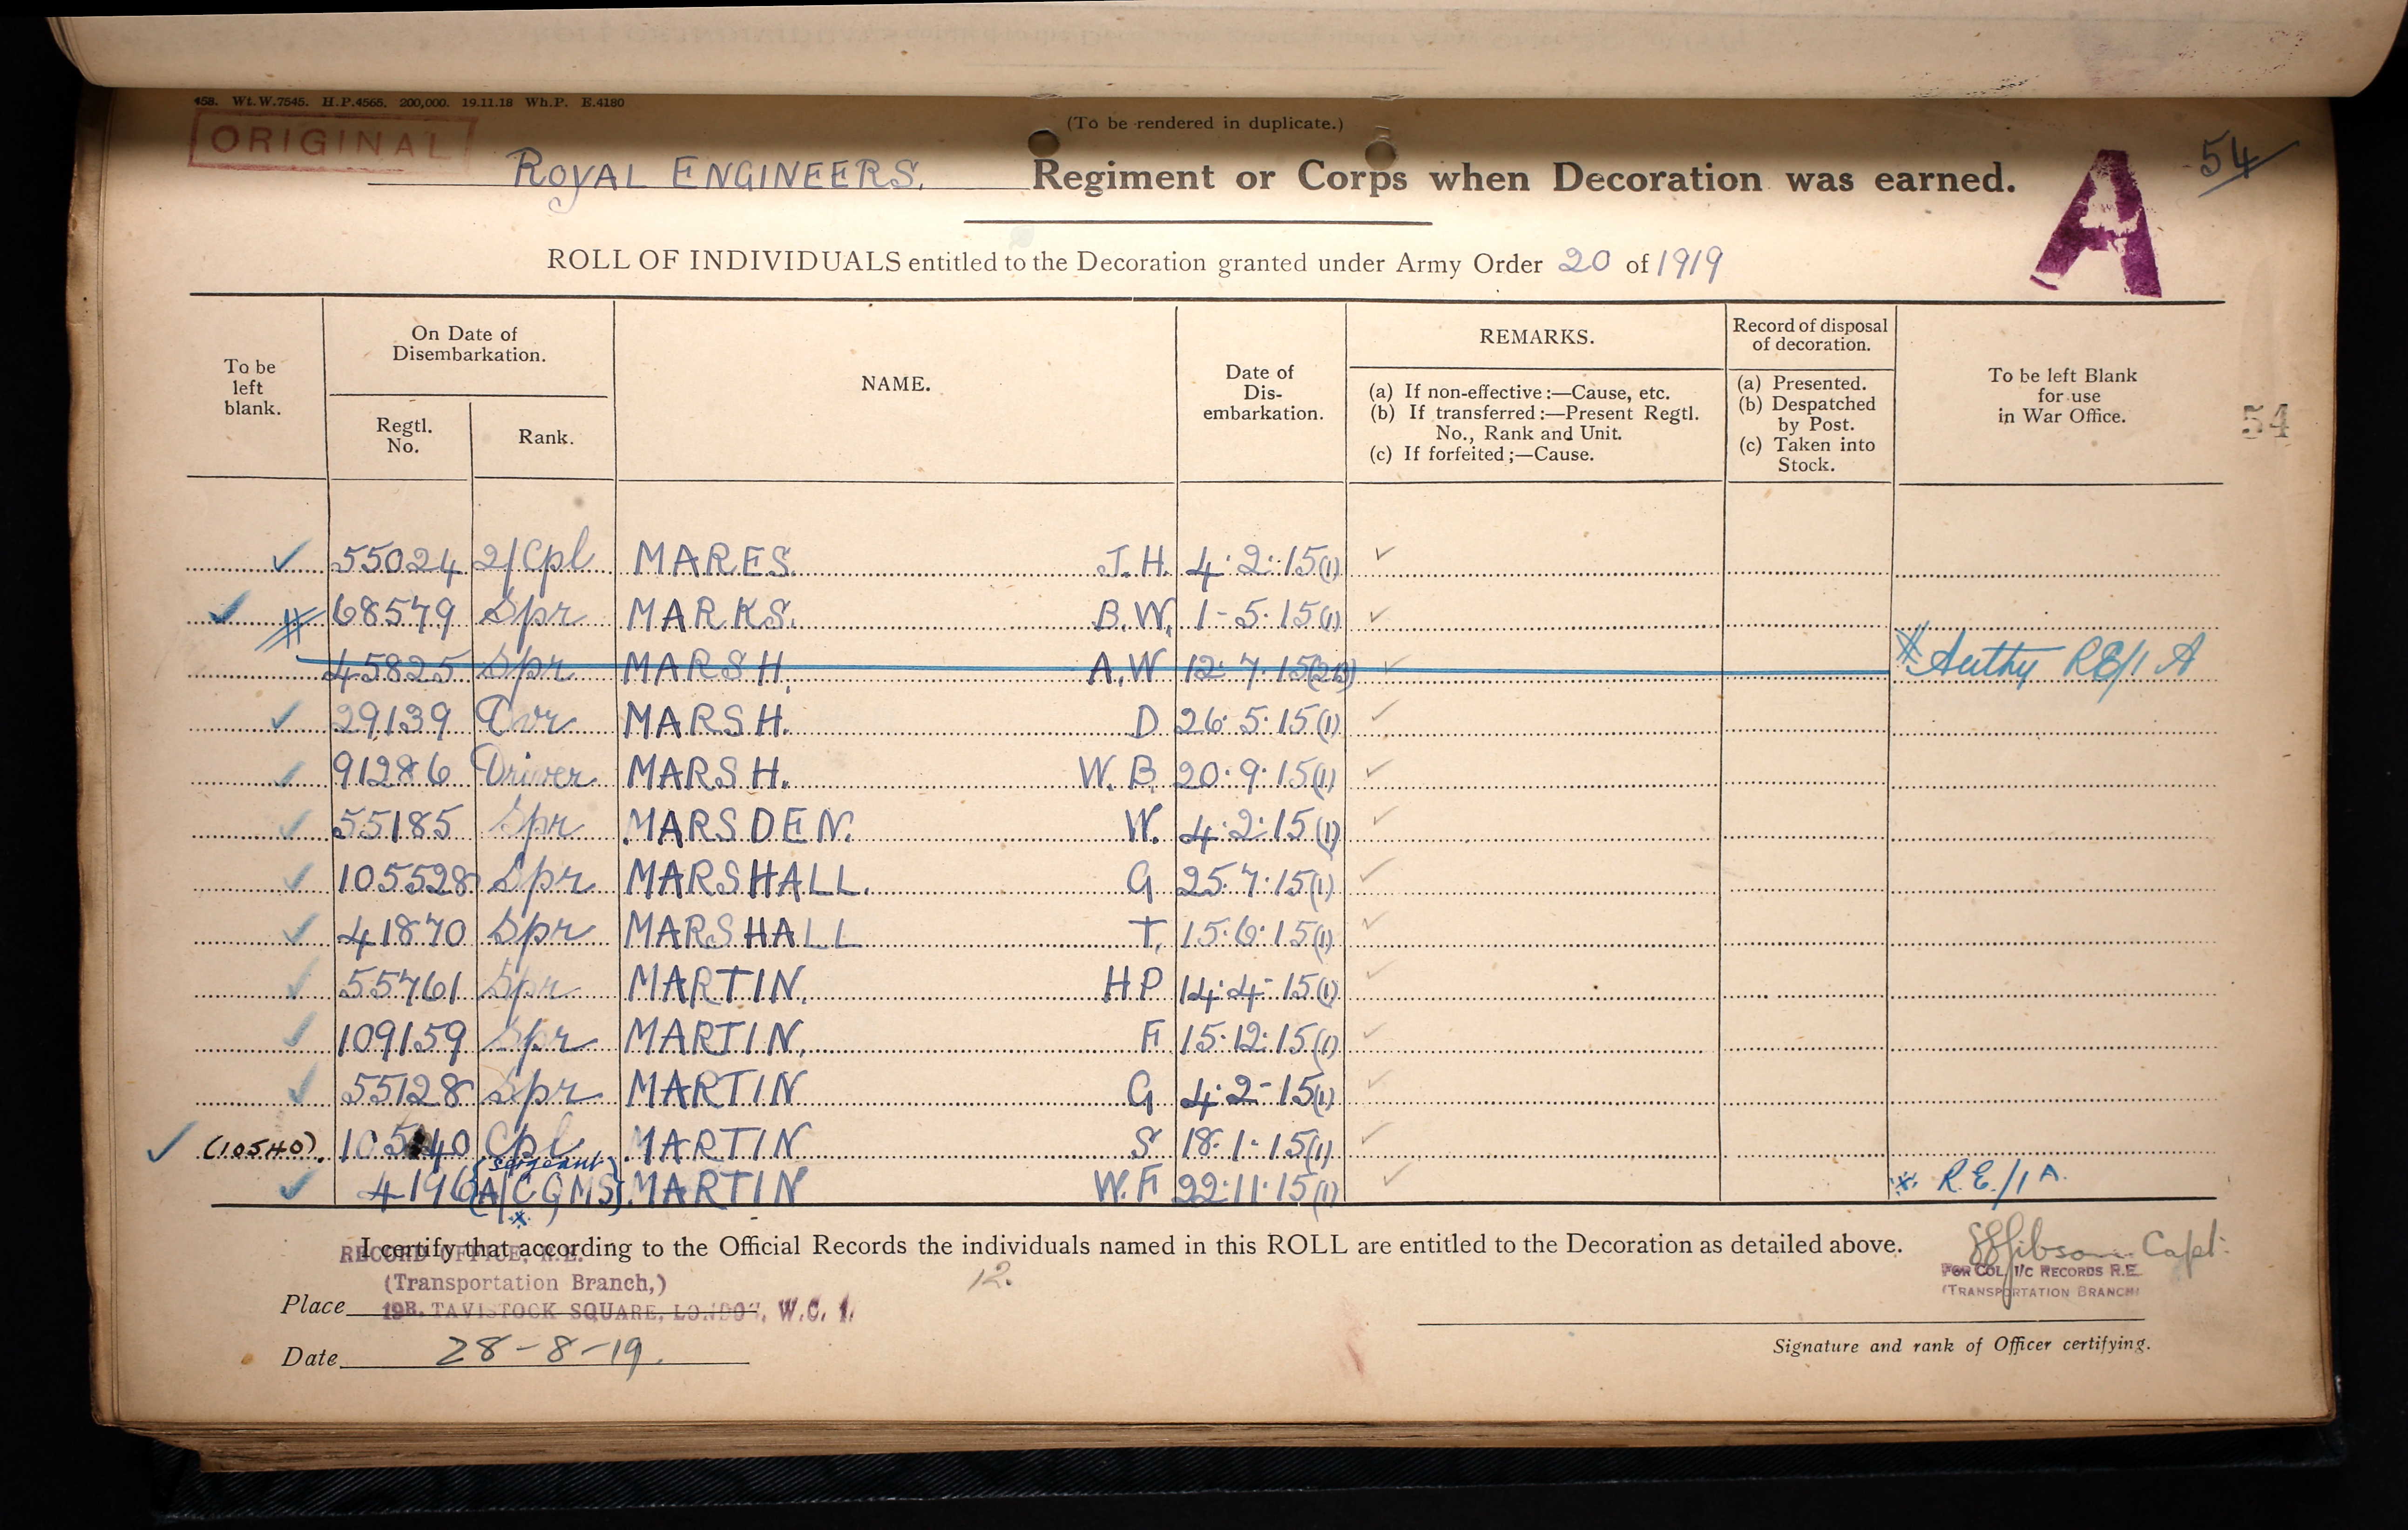 458. Wt.W.7545. H.P.4565. 200,000. 19.11.18 Wh.P. E.4180
(To be rendered in duplicate.)
ORIGINAL
54
ROYAL ENGINEERS. Regiment or Corps when Decoration was earned.
A
ROLL OF INDIVIDUALS entitled to the Decoration granted under Army Order 20 of 1919
To be left blank.
On Date of Disembarkation.
Regtl. No.
Rank.
NAME.
Date of Dis-embarkation.
REMARKS.
(a) If non-effective:—Cause, etc.
(b) If transferred:—Present Regtl. No., Rank and Unit.
(c) If forfeited;—Cause.
Record of disposal of decoration.
(a) Presented.
(b) Despatched by Post.
(c) Taken into Stock.
To be left Blank for use in War Office.
54
✓ 55024 2/Cpl MARES. J.H. 4.2.15(1) ✓
✓ # 68579 Spr MARKS. B.W. 1-5.15(1) ✓
45825 Spr MARSH. A.W 12.7.15(2B) ✓ # Authy RE/1 A
✓ 29139 Dvr MARSH. D 26.5.15(1) ✓
✓ 91286 Driver MARSH. W.B. 20.9.15(1) ✓
✓ 55185 Spr MARSDEN. W. 4.2.15(1) ✓
✓ 105528 Spr MARSHALL. G 25.7.15(1) ✓
✓ 41870 Spr MARSHALL T. 15.6.15(1) ✓
✓ 55761 Spr MARTIN. H P 14.4-15(1) ✓
✓ 109159 Spr MARTIN. F 15.12.15(1) ✓
✓ 55128 Spr MARTIN G 4.2-15(1) ✓
✓ (10540). 105 40 Cpl MARTIN S 18.1.15(1) ✓
✓ 4196 {Sergeant A/CQMS} * MARTIN W.F 22.11.15(1) ✓ * R.E./1 A.
I certify that according to the Official Records the individuals named in this ROLL are entitled to the Decoration as detailed above.
RECORD OFFICE, R.E.
(Transportation Branch,)
12.
Gibson Capt.
FOR COL. I/C RECORDS R.E.
(TRANSPORTATION BRANCH)
Place 19B. TAVISTOCK SQUARE, LONDON, W.C. 1.
Signature and rank of Officer certifying.
Date 28-8-19.